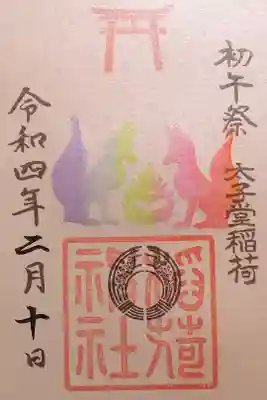 初午祭 太子堂稲荷
稲荷
神社
令和四年二月十日